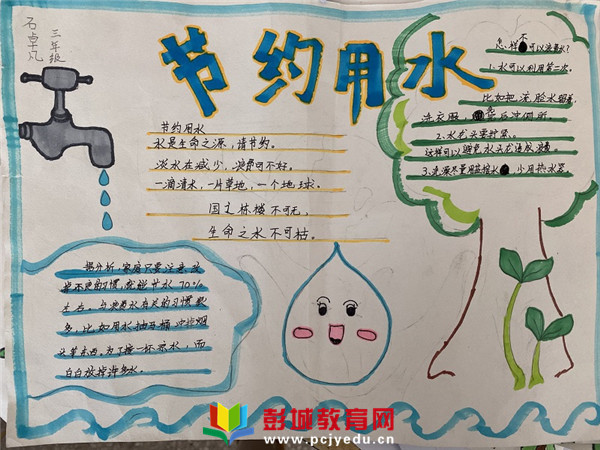 石卓凡
三年级
节约用水
节约用水
水是生命之源,请节约。
淡水在减少,浪费可不好。
一滴清水,一片草地,一个地球。
国之栋梁不可无,
生命之水不可枯。
怎样不可以浪费水?
1.水可以利用第二次。
比如把洗脸水留着,
洗衣服
后冲厕所。
2.水龙头要拧紧。
这样可以避免水龙头浪费
3.洗澡尽量用
水 少用热水器。
据分析,家庭只要注意改
掉不良的习惯,就能节水70%
左右,与浪费水有关的习惯很
多,比如:用水抽马桶冲掉烟
头和
,为了接一杯凉水,而
白白放掉许多水。
彭城教育网
www.pcjyedu.cn